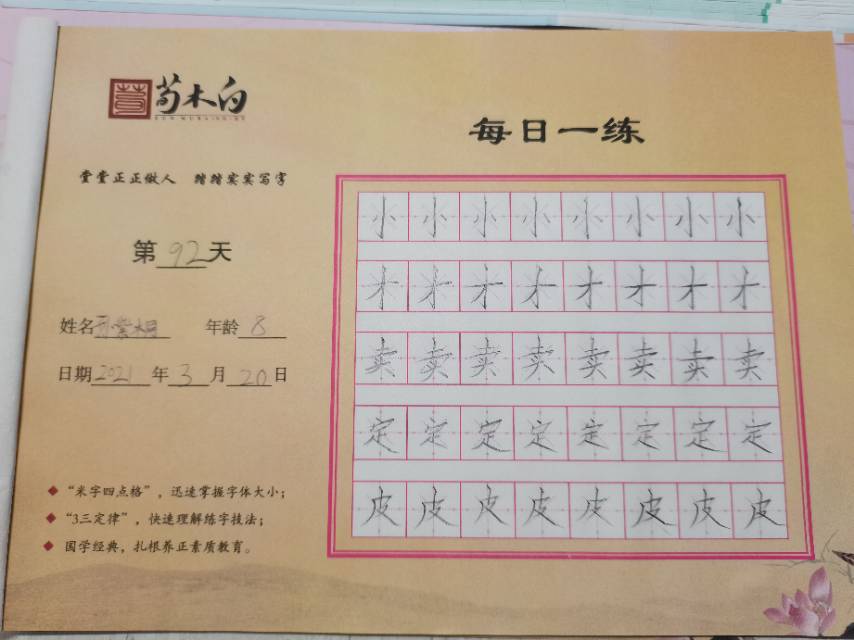 荀木白
每日一练
堂堂正正做人 踏踏实实写字
第92天
姓名 年龄8
日期2021年3月20日
"米字四点格"，迅速掌握字体大小；
"3三定律"，快速理解练字技法；
国学经典，扎根养正素质教育。
小小小小小小小小
才才才才才才才才
卖卖卖卖卖卖卖卖
定定定定定定定定
皮皮皮皮皮皮皮皮